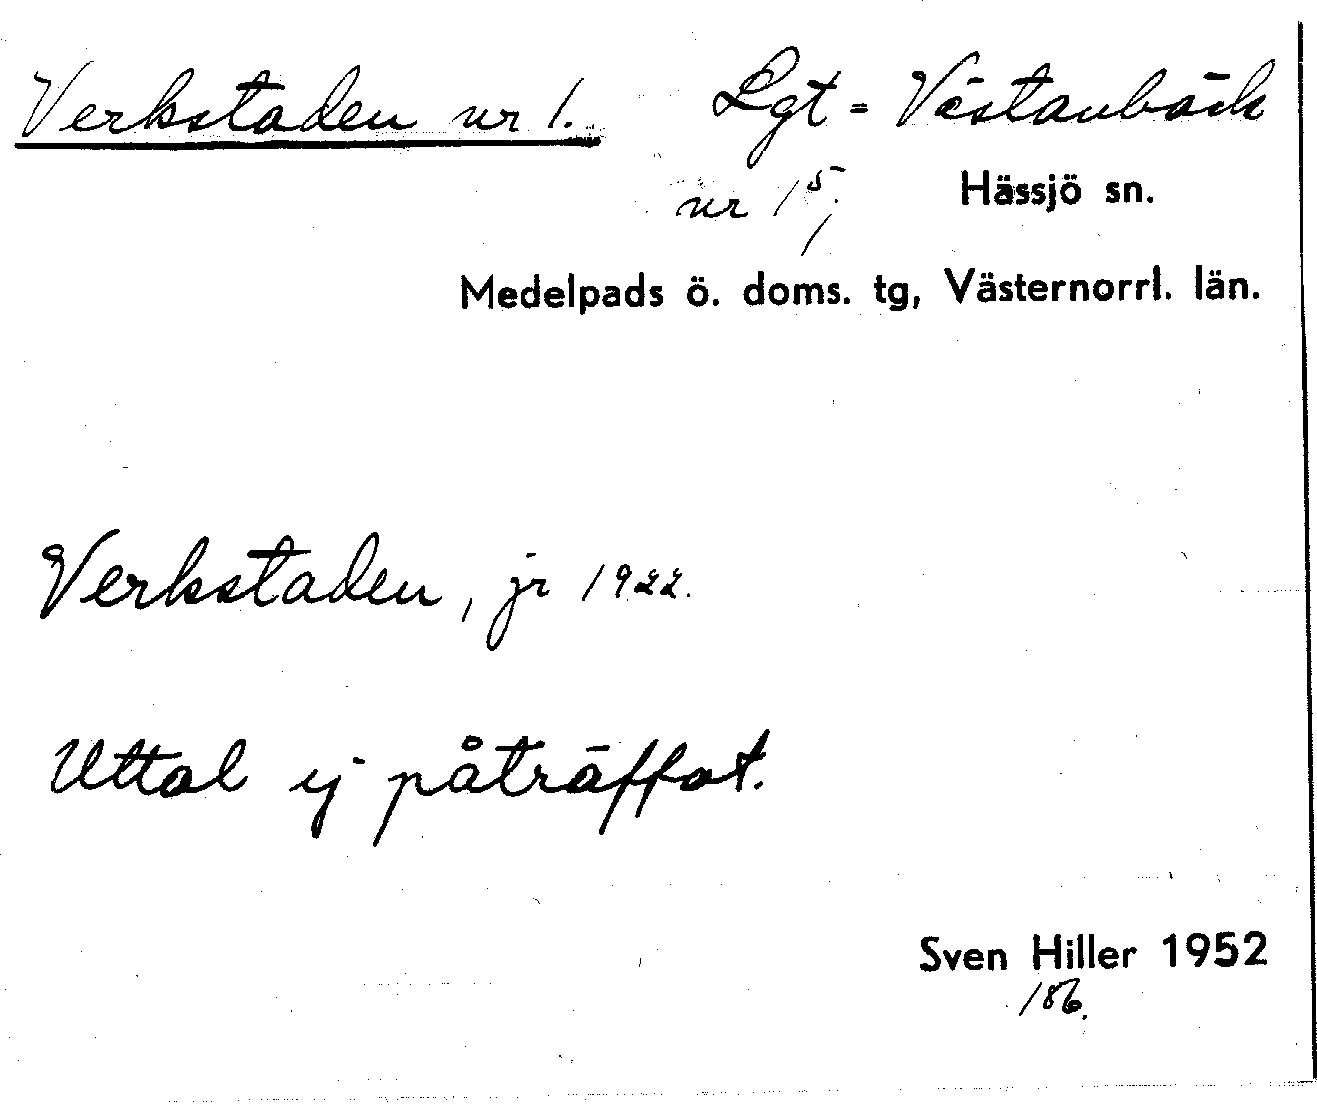 Verkstaden nr 1. Lgt = Västanbäck
nr 1⁵, Hässjö sn.
Medelpads ö. doms. tg, Västernorrl. län.
Verkstaden, jr 1922.
Uttal ej påträffat.
Sven Hiller 1952
186.